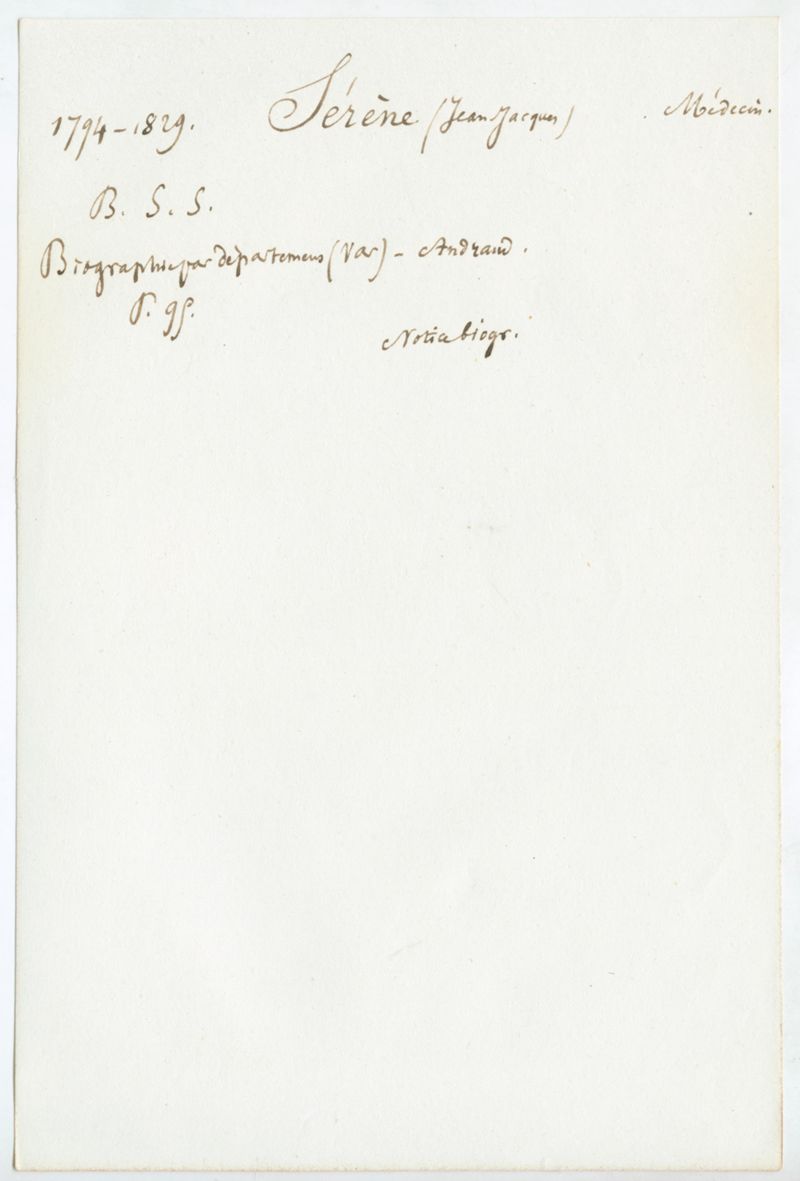 1794-1829. Sérène (Jean Jacques) Médecin.
B. S. S.
Biographie par départemens (Var) - Andraud.
P. 95.
Notice biogr.